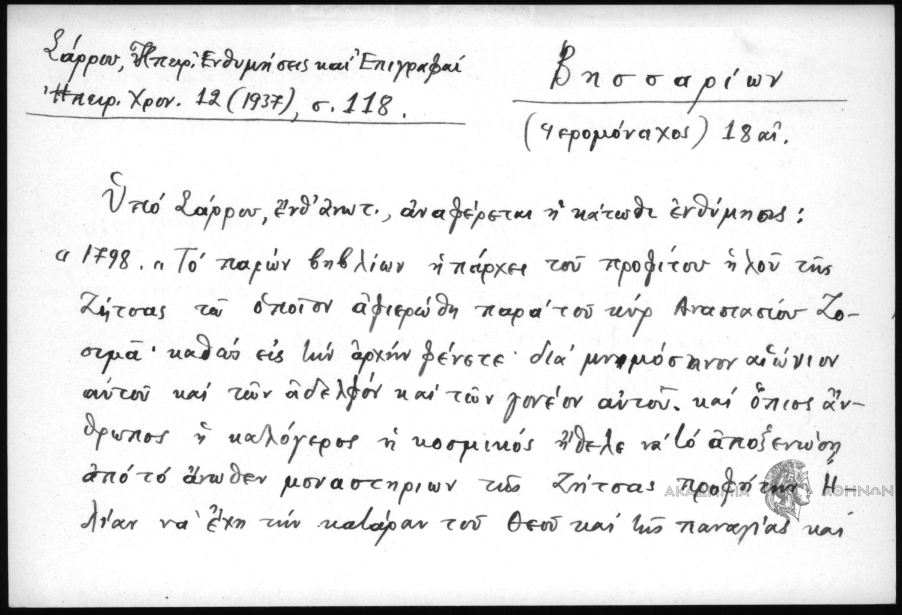 Σάρρου, Ἠπειρ. Ἐνθυμήσεις καὶ Ἐπιγραφαί
Ἠπειρ. Χρον. 12 (1937), σ. 118.
Βησσαρίων
(Ἱερομόναχος) 18 αἰ.
Ὑπό Σάρρου, ἔνθ' ἀνωτ., ἀναφέρεται ἡ κάτωθι ἐνθύμησις:
« 1798. « Τό παρών βηβλίων ἠπάρχει τοῦ προφίτου ἠλοῦ τῆς
Ζήτσας τῶ ὁποῖον ἀφιερώθη παρά τοῦ κύρ Ἀναστασίου Ζο-
σιμᾶ· καθώς εἰς τήν ἀρχήν φένετε· διά μνημόσηνον αἰώνιον
αὐτοῦ καί τῶν ἀδελφόν καί τῶν γονέον αὐτοῦ. καί ὅπιος ἄν-
θρωπος ἤ καλόγερος ἤ κοσμικός ἤθελε νά τό ἀποξενώση
ἀπό τό ἄνωθεν μοναστηριων τῆς Ζήτσας προφήτην Ἠ-
λίαν νά ἔχη τήν κατάραν τοῦ Θεοῦ καί τῆς παναγίας καί
ΑΚΑΔΗΜΙΑ ΑΘΗΝΩΝ